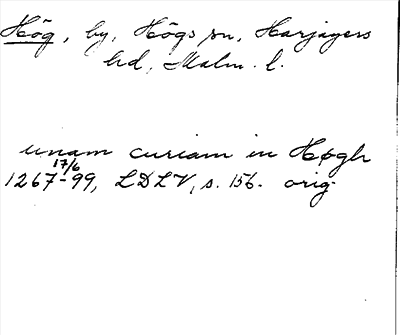 Hög, by, Högs sn, Harjagers
hd, Malm. l.
unam curiam in Høgh
17/6
1267-99, LDLV, s. 156. orig.